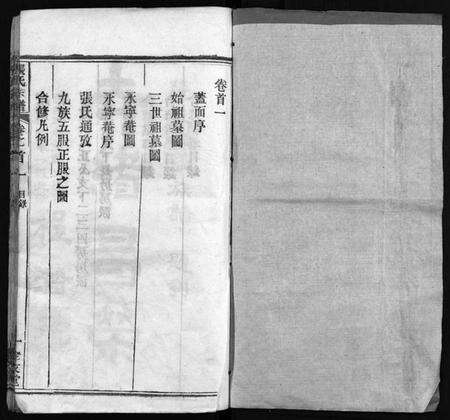 卷首一
蓋面序
始祖墓圖
三世祖墓圖
永寧菴圖
永寧菴序
張氏通攷
九族五服正服之圖
合修凡例
張氏宗譜
卷之首一
目錄